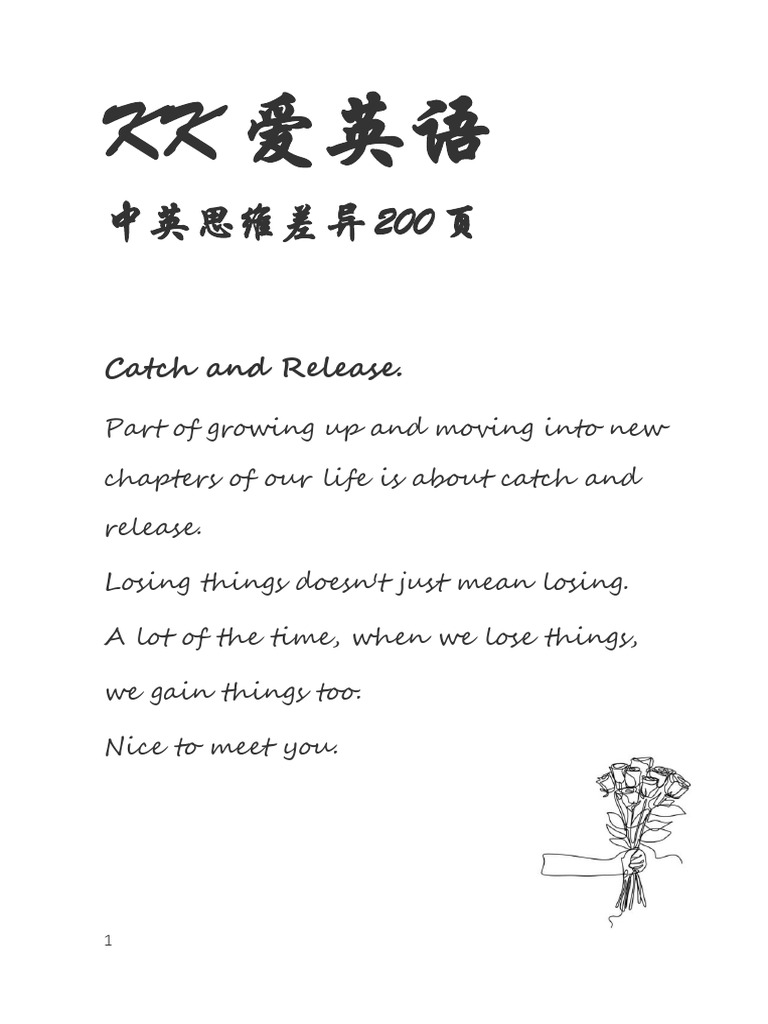 KK 爱英语
中英思维差异200页
Catch and Release.
Part of growing up and moving into new
chapters of our life is about catch and
release.
Losing things doesn't just mean losing.
A lot of the time, when we lose things,
we gain things too.
Nice to meet you.
1